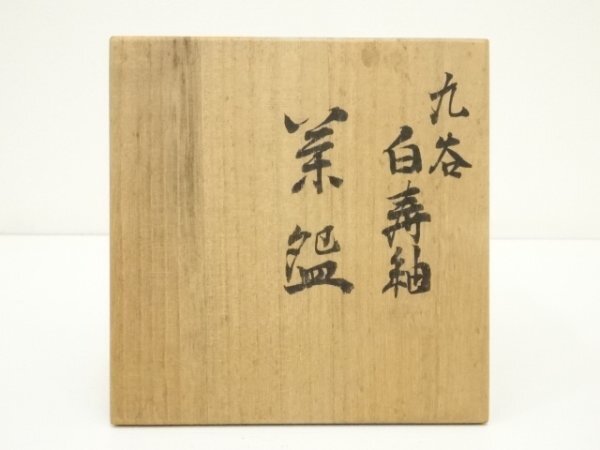 九谷
白寿釉
茶盌